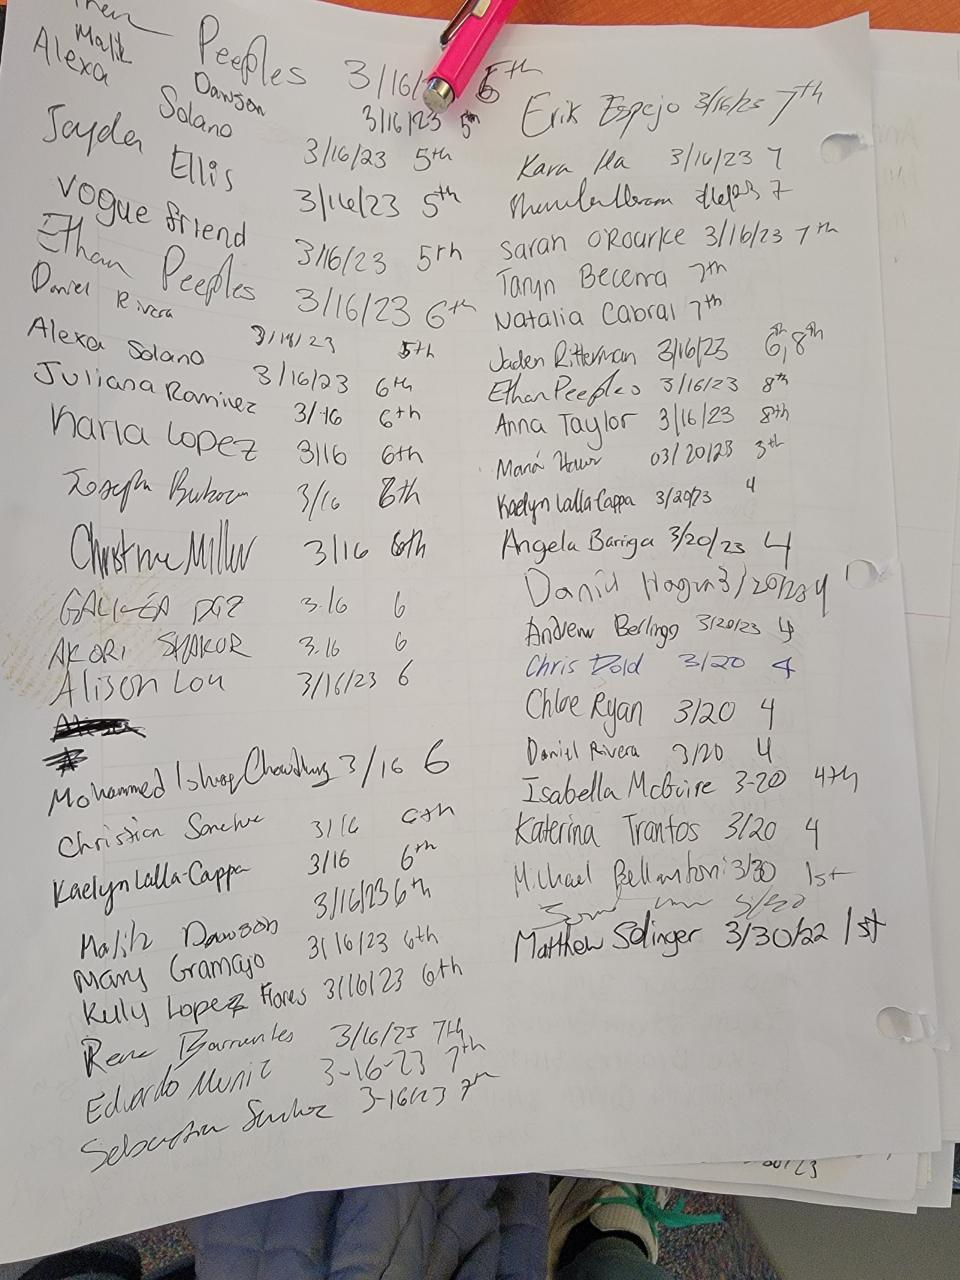 Peeples 3/16/ 5th
Malik Dawson 3/16/23 5th
Alexa Solano 3/16/23 5th
Jayden Ellis 3/16/23 5th
Vogue friend 3/16/23 5th
Ethan Peeples 3/16/23 6th
Daniel Rivera 3/16/23 5th
Alexa Solano 3/16/23 6th
Juliana Ramirez 3/16 6th
Karla Lopez 3/16 6th
Joseph 3/16 6th
Christine Miller 3/16 6th
3.16 6
AKORI SHAKUR 3.16 6
Alison Lou 3/16/23 6
Mohammed Chowdhury 3/16 6
Christian Sanchez 3/16 6th
Kaelyn Lalla-Cappa 3/16 6th
Malik Dawson 3/16/23 6th
Mary Gramajo 3/16/23 6th
Kelly Lopez Flores 3/16/23 6th
Rene Barrantes 3/16/23 7th
Eduardo Muniz 3-16-23 7th
Sebastian Sanchez 3-16/23 7th
Erik Espejo 3/16/23 7th
Kara Ma 3/16/23 7
7
Sarah O'Rourke 3/16/23 7th
Taryn Becerra 7th
Natalia Cabral 7th
Jaden Ritterman 3/16/23 6th, 8th
Ethan Peeples 3/16/23 8th
Anna Taylor 3/16/23 8th
03/20/23 3th
Kaelyn Lalla-Cappa 3/20/23 4
Angela Bariga 3/20/23 4
Daniel 3/20/23 4
Andrew Berlingo 3/20/23 4
Chris Dold 3/20 4
Chloe Ryan 3/20 4
Daniel Rivera 3/20 4
Isabella McGuire 3-20 4th
Katerina Trantos 3/20 4
Michael Bellantoni 3/30 1st
Matthew Solinger 3/30/22 1st